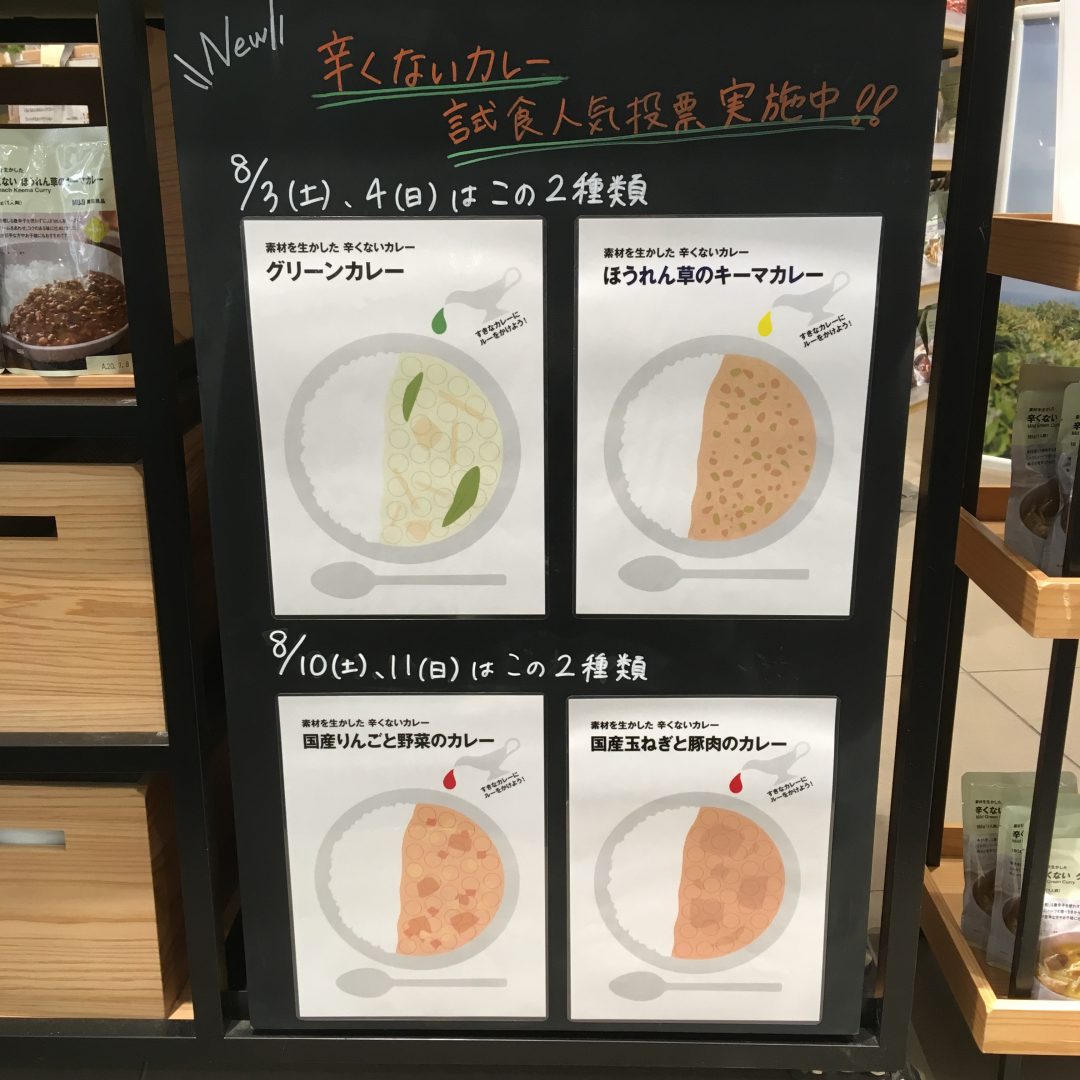 New!!
辛くないカレー
試食人気投票実施中!!
8/3(土)、4(日)はこの2種類
素材を生かした 辛くないカレー
グリーンカレー
すきなカレーに
ルーをかけよう!
素材を生かした 辛くないカレー
ほうれん草のキーマカレー
すきなカレーに
ルーをかけよう!
8/10(土)、11(日)はこの2種類
素材を生かした 辛くないカレー
国産りんごと野菜のカレー
すきなカレーに
ルーをかけよう!
素材を生かした 辛くないカレー
国産玉ねぎと豚肉のカレー
すきなカレーに
ルーをかけよう!
ほうれん草のキーマカレー
Keema Curry
MUJI 無印良品
素材を生かした
辛くない
Mild Green Curry
辛くない